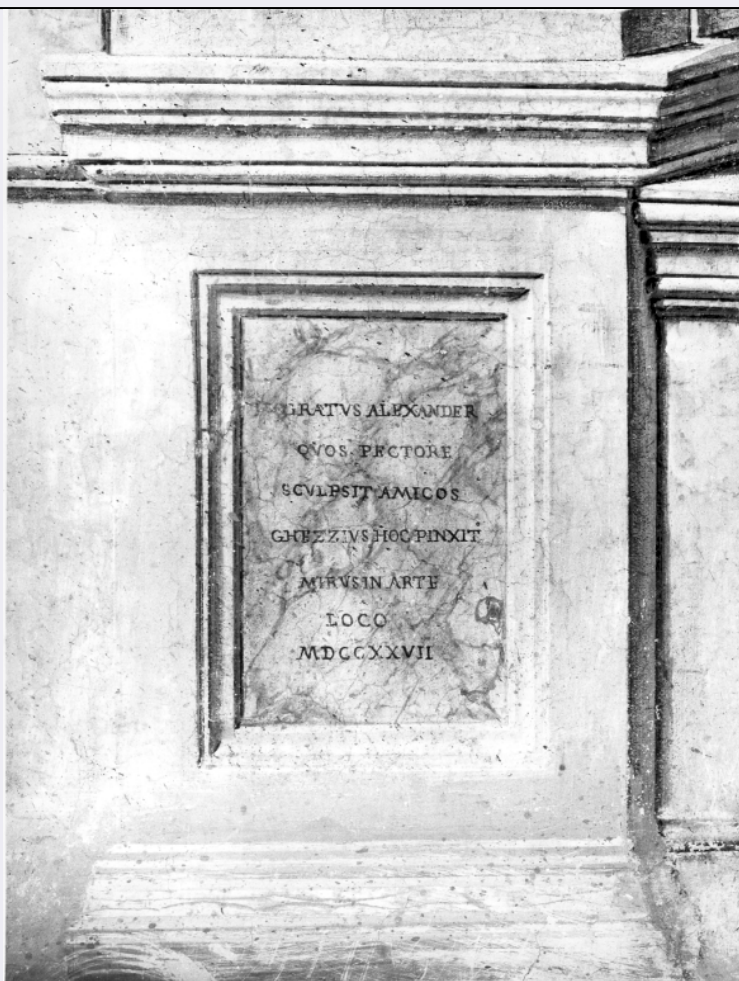 GRATVS ALEXANDER
QVOS PECTORE
SCVLPSIT AMICOS
GHEZZIVS HOC PINXIT
MIRVS IN ARTE
LOCO
MDCCXXVII